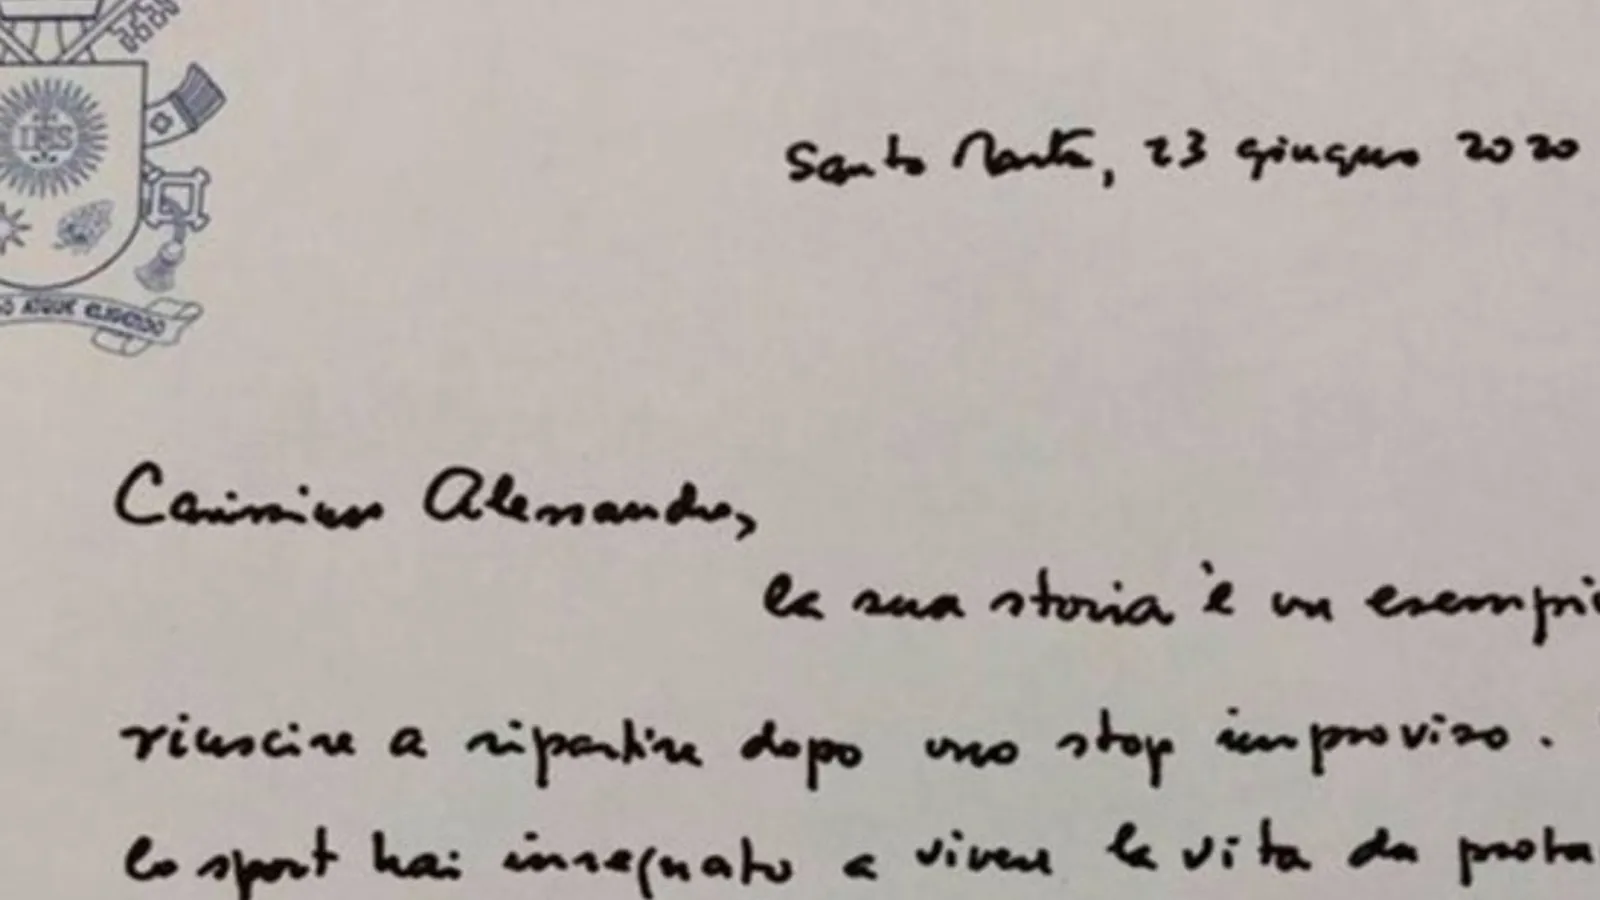 IHS
ATQUE ELIGENDO
Santa Marta, 23 giugno 2020
Carissimo Alessandro,
la sua storia è un esempio
riuscire a ripartire dopo uno stop improviso.
lo sport hai insegnato a vivere la vita da prota